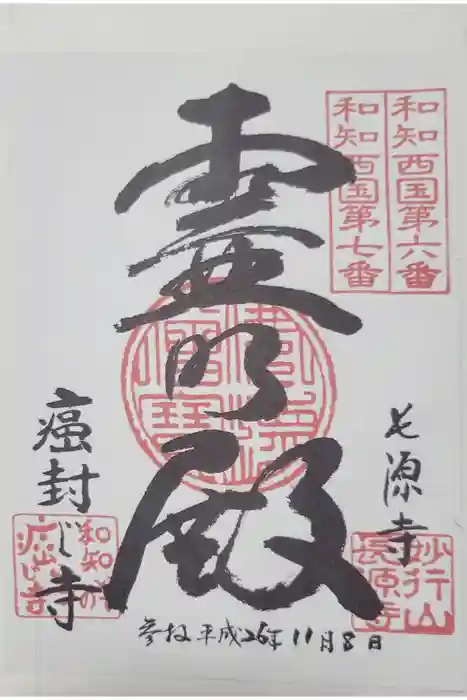 和知西国第六番
和知西国第七番
霊明殿
長源寺
妙行山
長源寺
癌封じ寺
参拝 平成26年11月8日